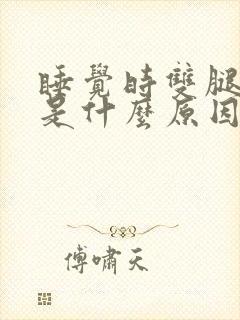 睡覺時雙腿
是什麼原因
傅嘯天